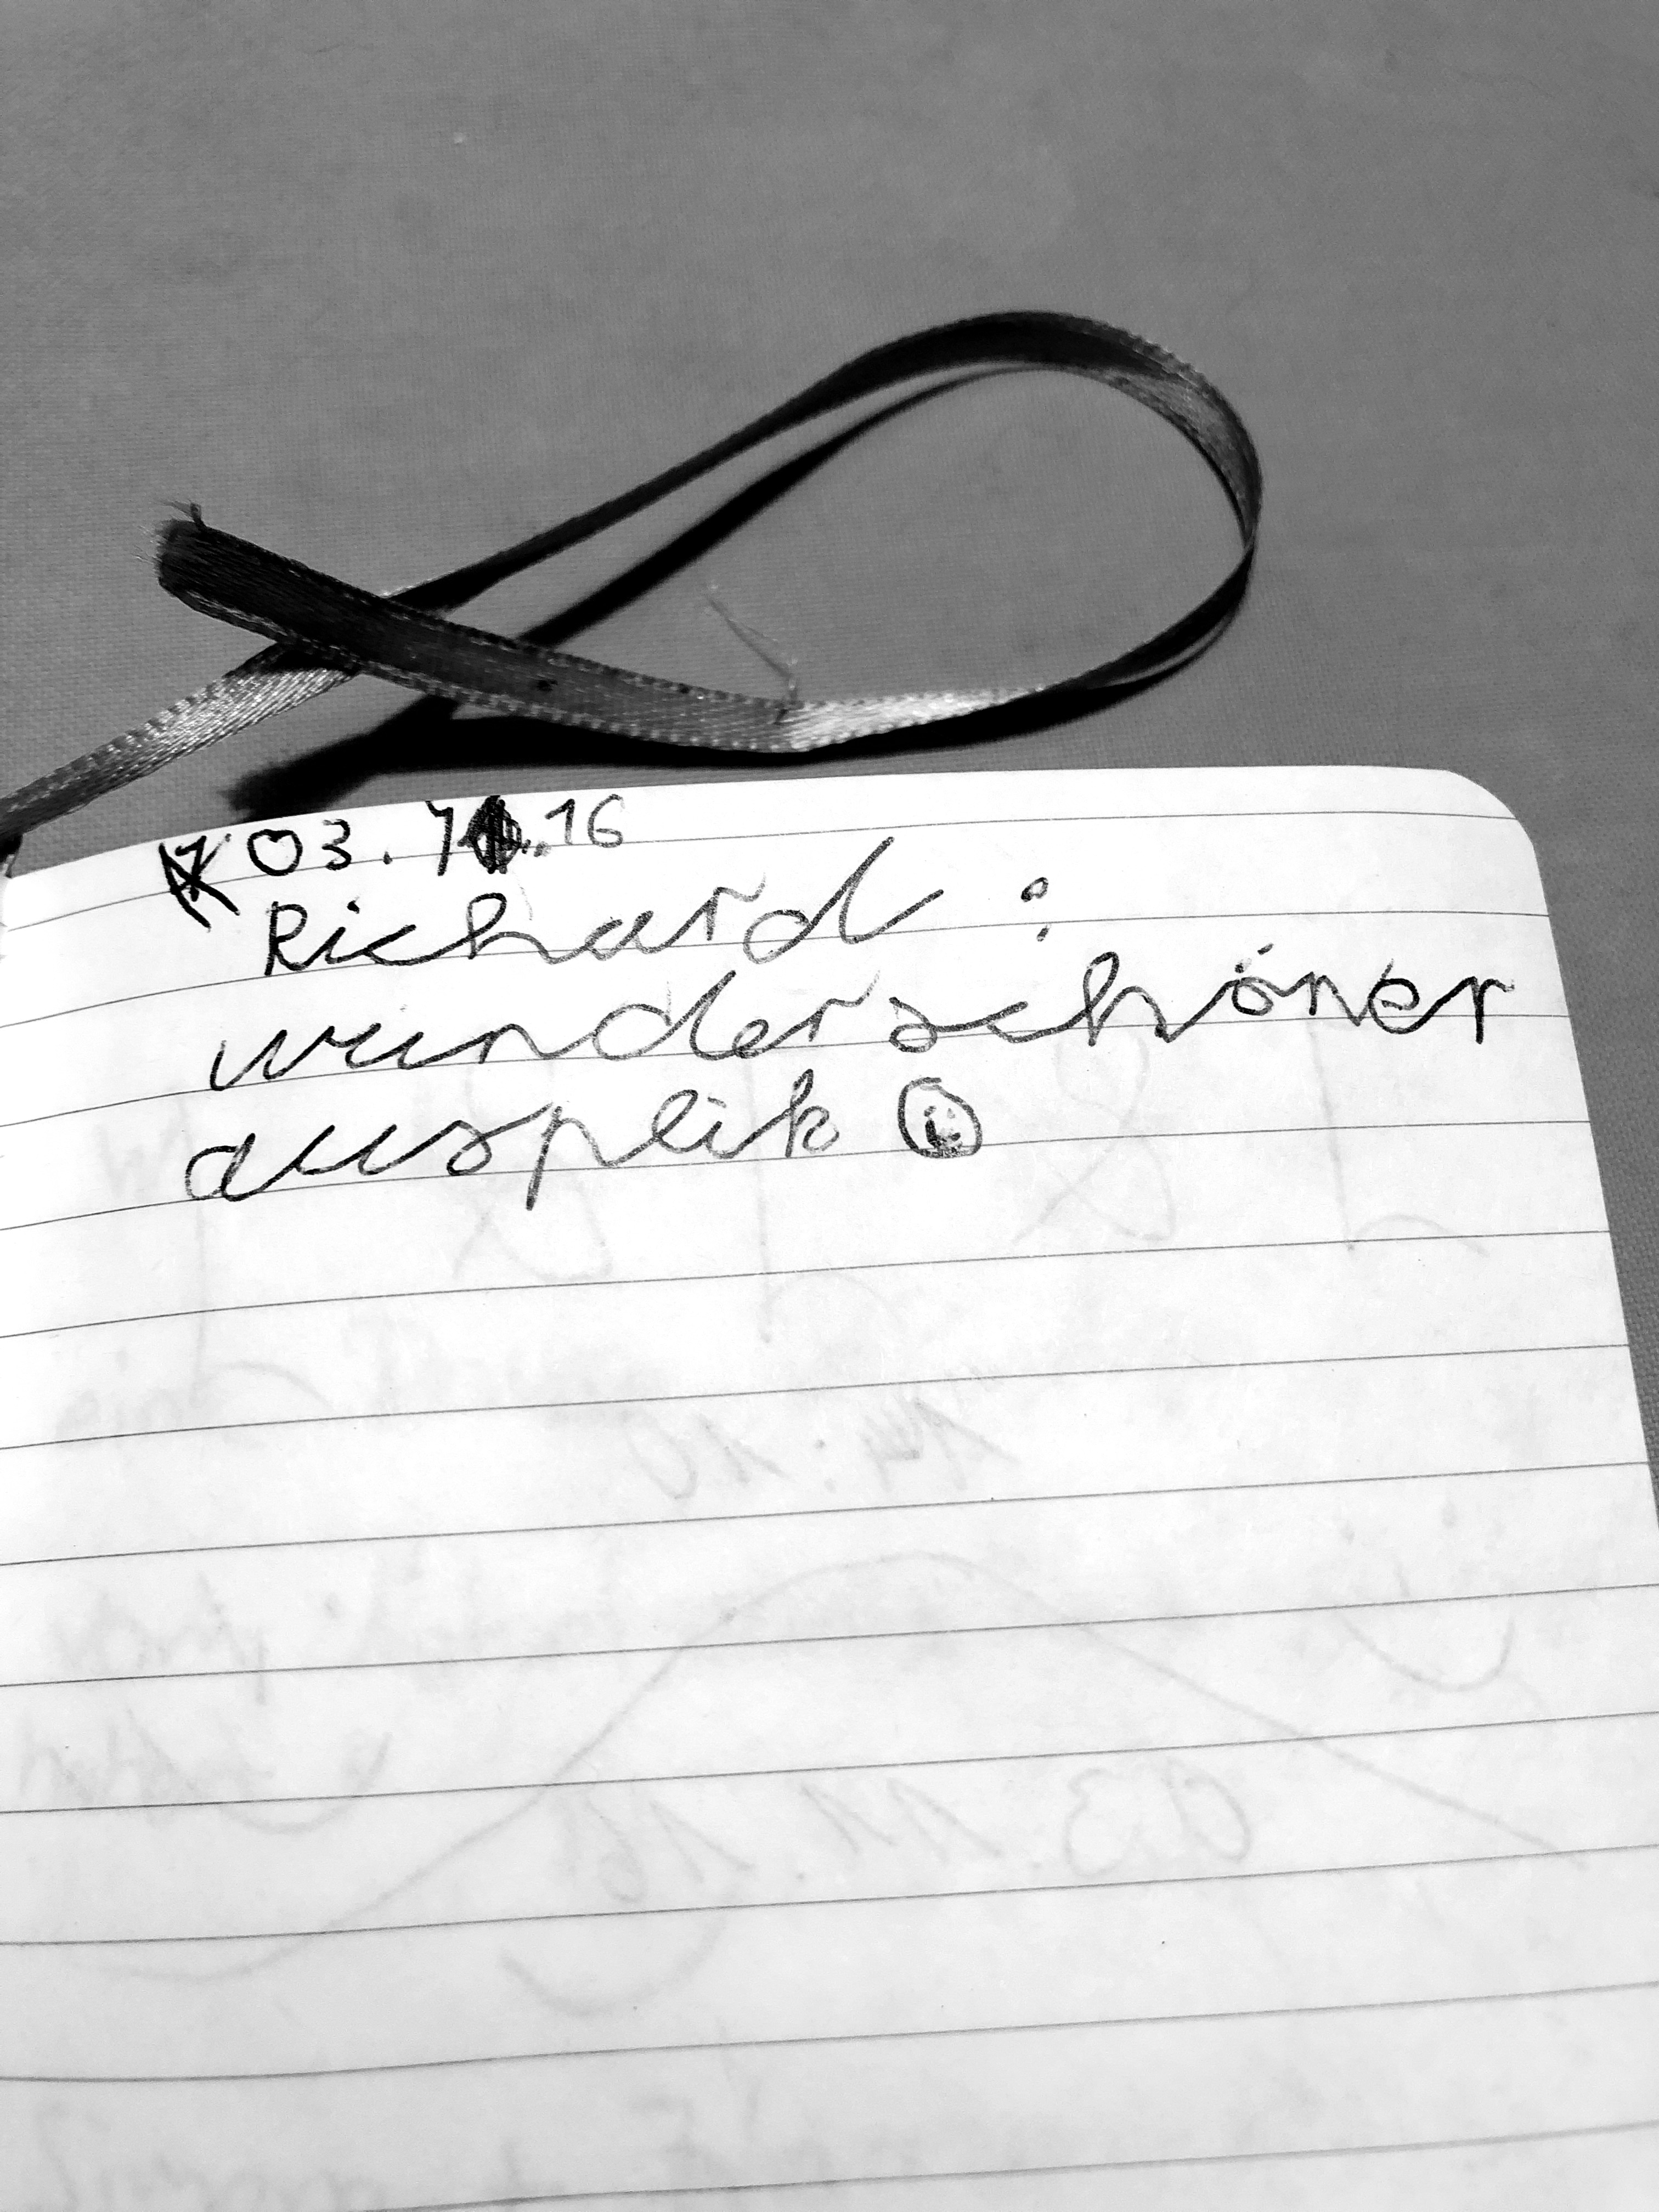 03. 11.16
Richard:
wunderschöner
ausplik ☺